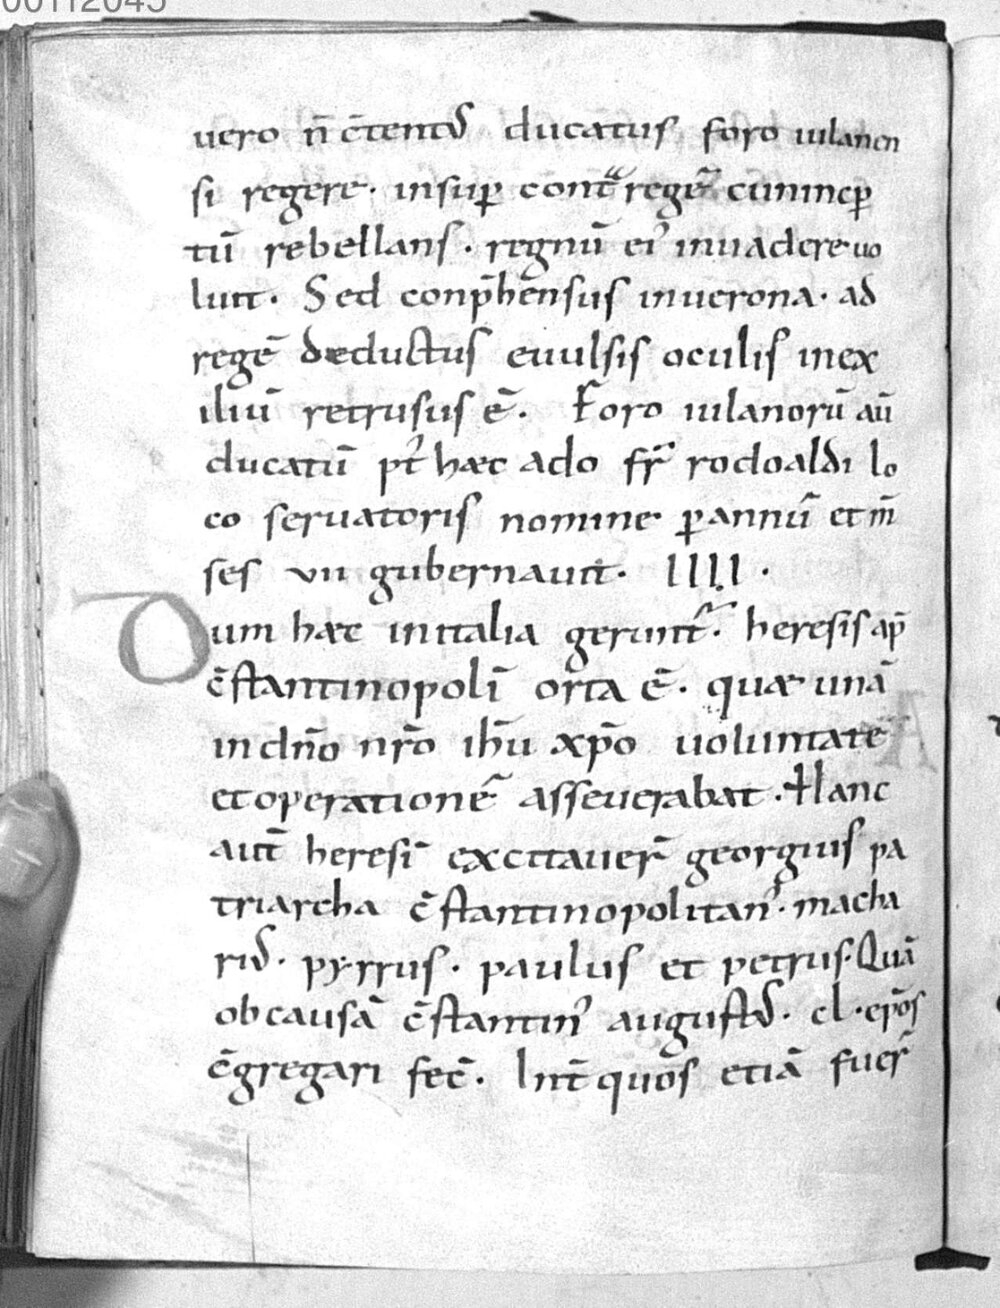 00112045
uero n̄ c̄tentus ducatus, foro iulanen
si regere. insup̱ cont̄ regē cunincp̱
tū rebellans. regnū ei᾿ inuadere uo
luit. Sed conp̄hēnsus inuerona. ad
regē deductus euulsis oculis inex
iliū retrusus ē. Foro iulanorū aū
ducatū pt᾿ hæc ado fr̄ rodoaldi lo
co seruatoris nomine p̱ annū et m̄
ses vii gubernauit. IIII.
Dum hæc initalia gerunt᾿. heresis ap̄
c̄stantinopolī orta ē. quæ unā
in dn̄o nr̄o ih̄u xp̄o uoluntatē
et operationē asseuerabat. Hanc
aut̄ heresī excitauer̄ georgius pa
triarcha c̄stantinopolitan᾿. macha
rius. pyrrus. paulus et petrus. Quā
ob causā c̄stantin᾿ augustus. cl. ep̄os
c̄gregari fec̄. Int̄ quos etiā fuer̄